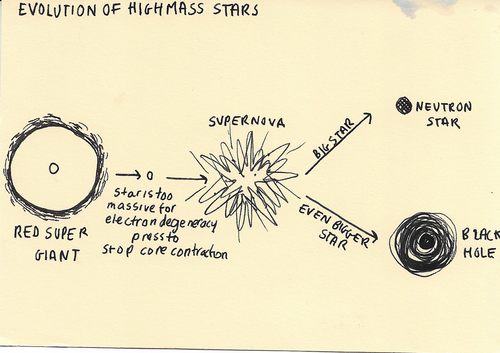 EVOLUTION OF HIGHMASS STARS
SUPERNOVA
BIG STAR
NEUTRON
STAR
star is too
massive for
electron degeneracy
press to
stop core contraction
RED SUPER
GIANT
EVEN BIGGER
STAR
BLACK
HOLE